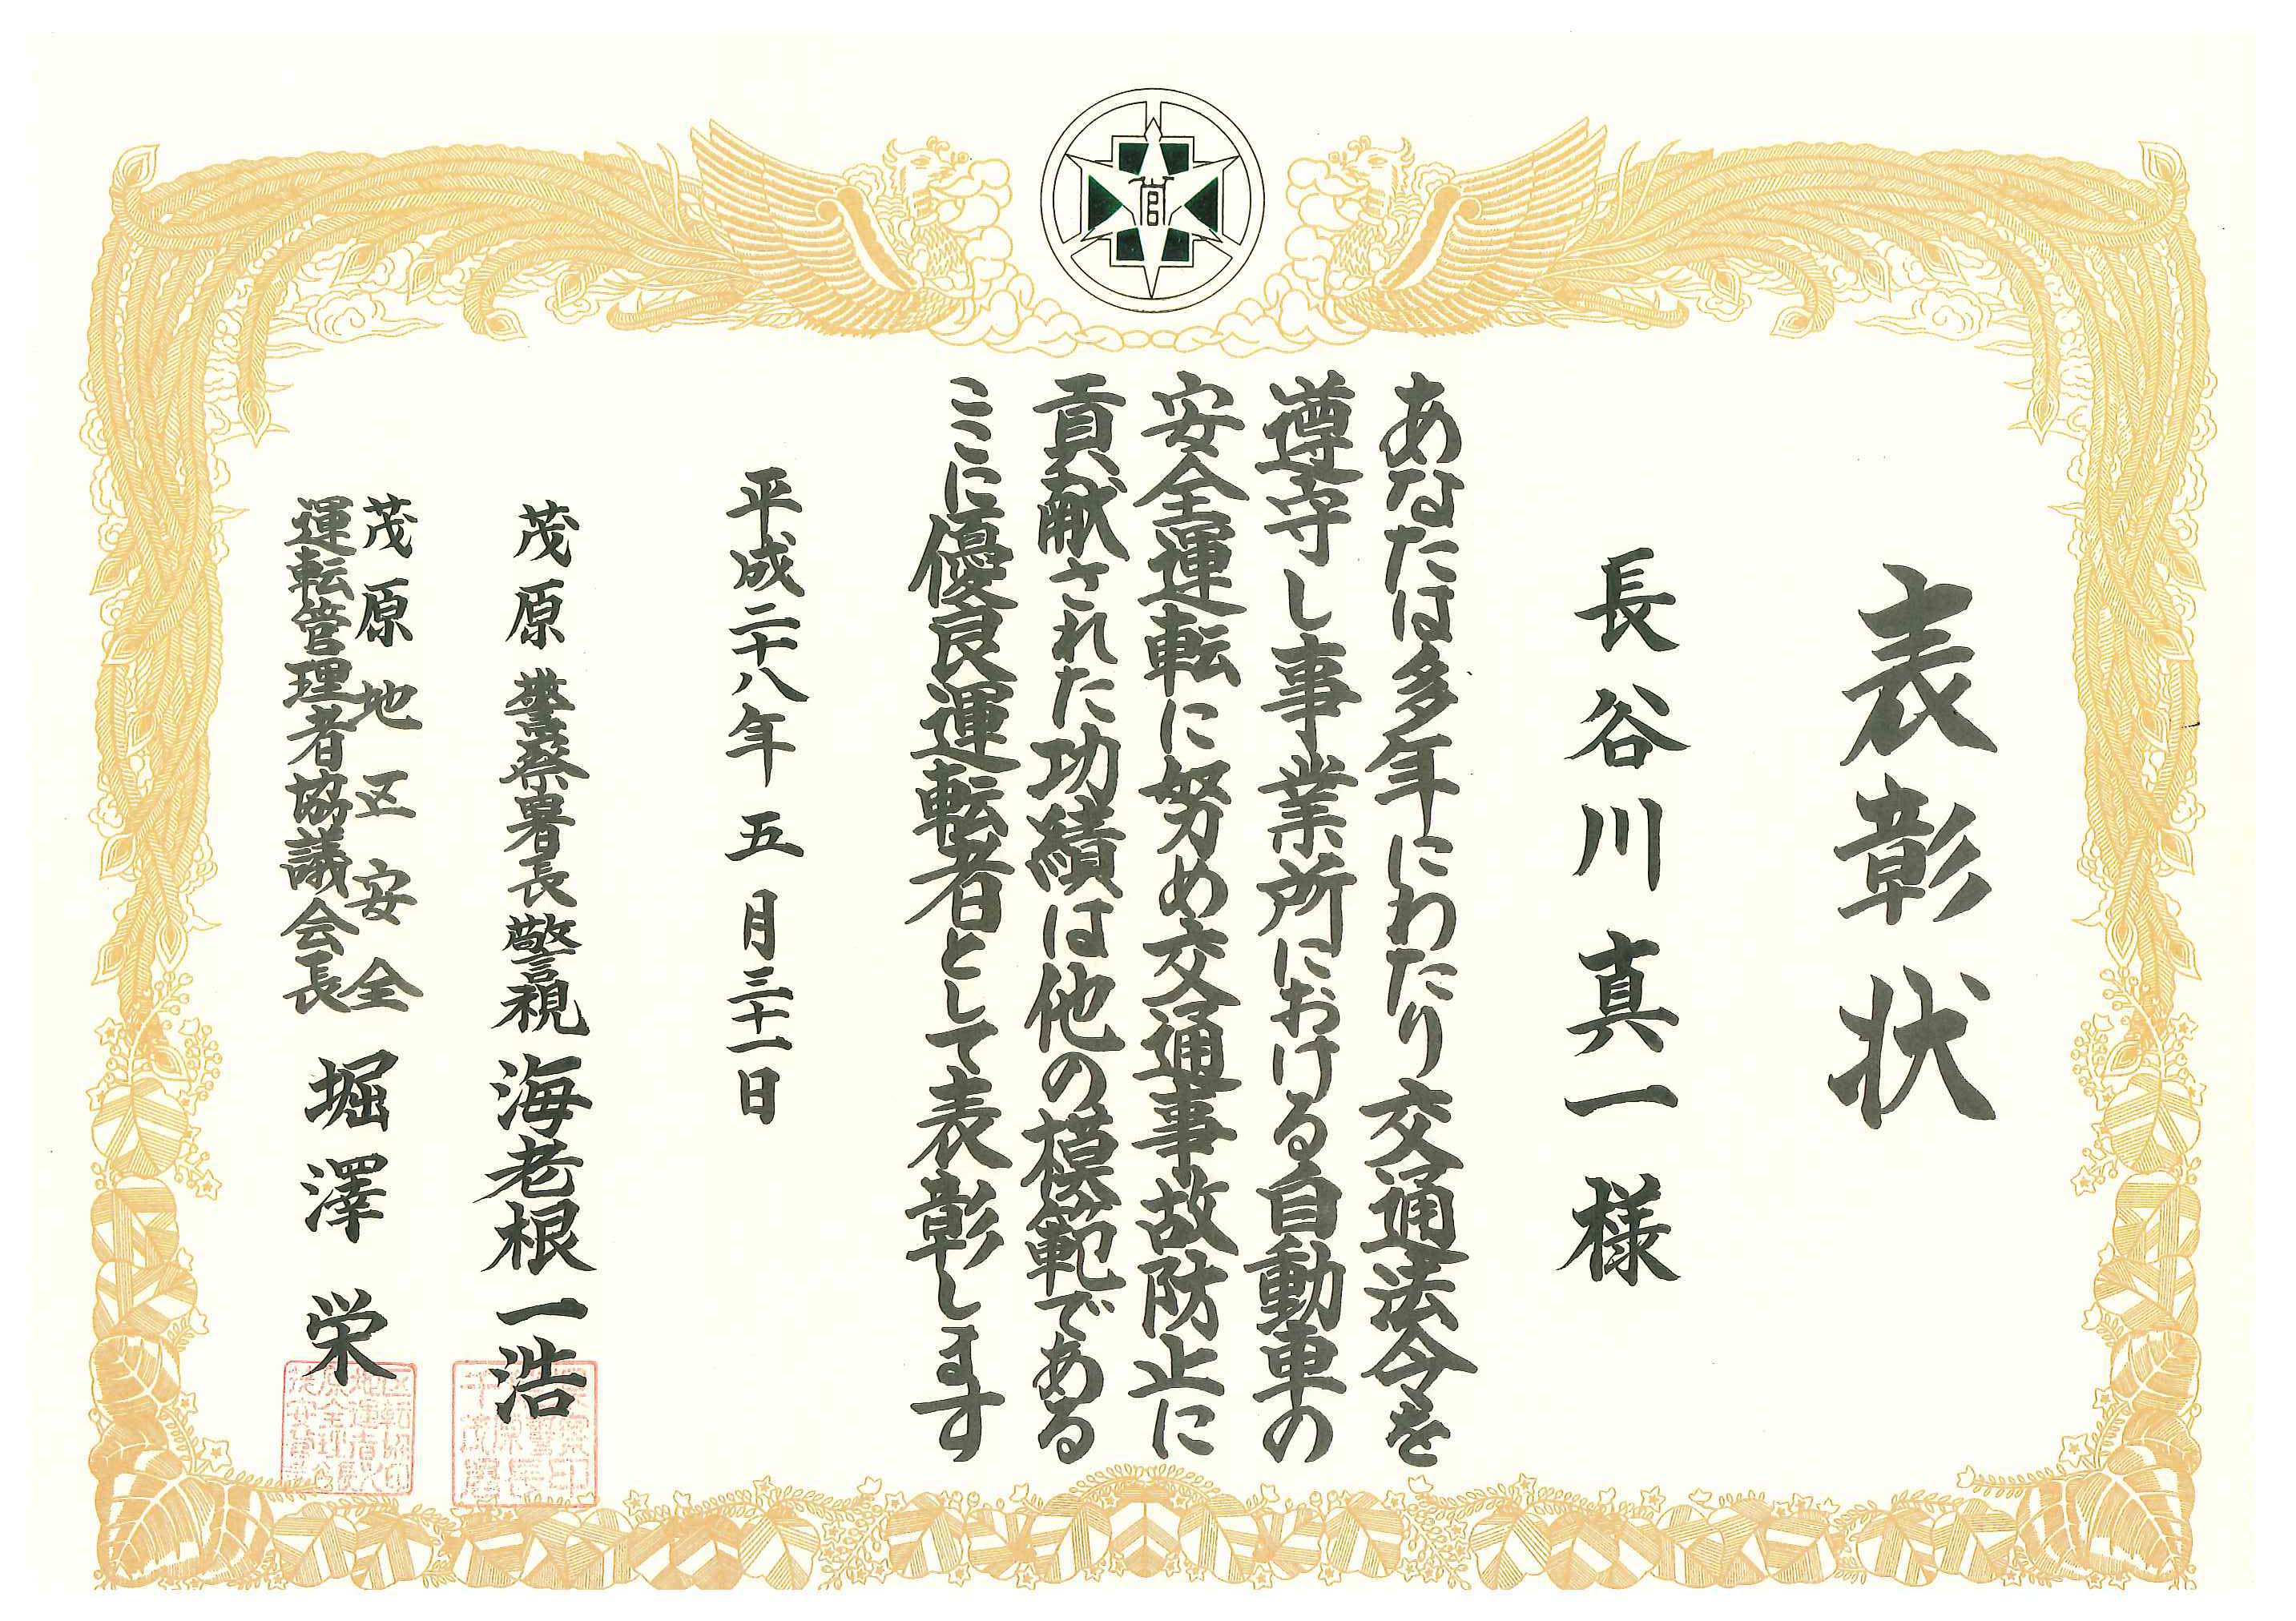 表彰状
長谷川真一様
あなたは多年にわたり交通法令を
遵守し事業所における自動車の
安全運転に努め交通事故防止に
貢献された功績は他の模範である
ここに優良運転者として表彰します
平成二十八年五月三十一日
茂原警察署長警視 海老根一浩
茂原地区安全
運転管理者協議会長 堀澤栄